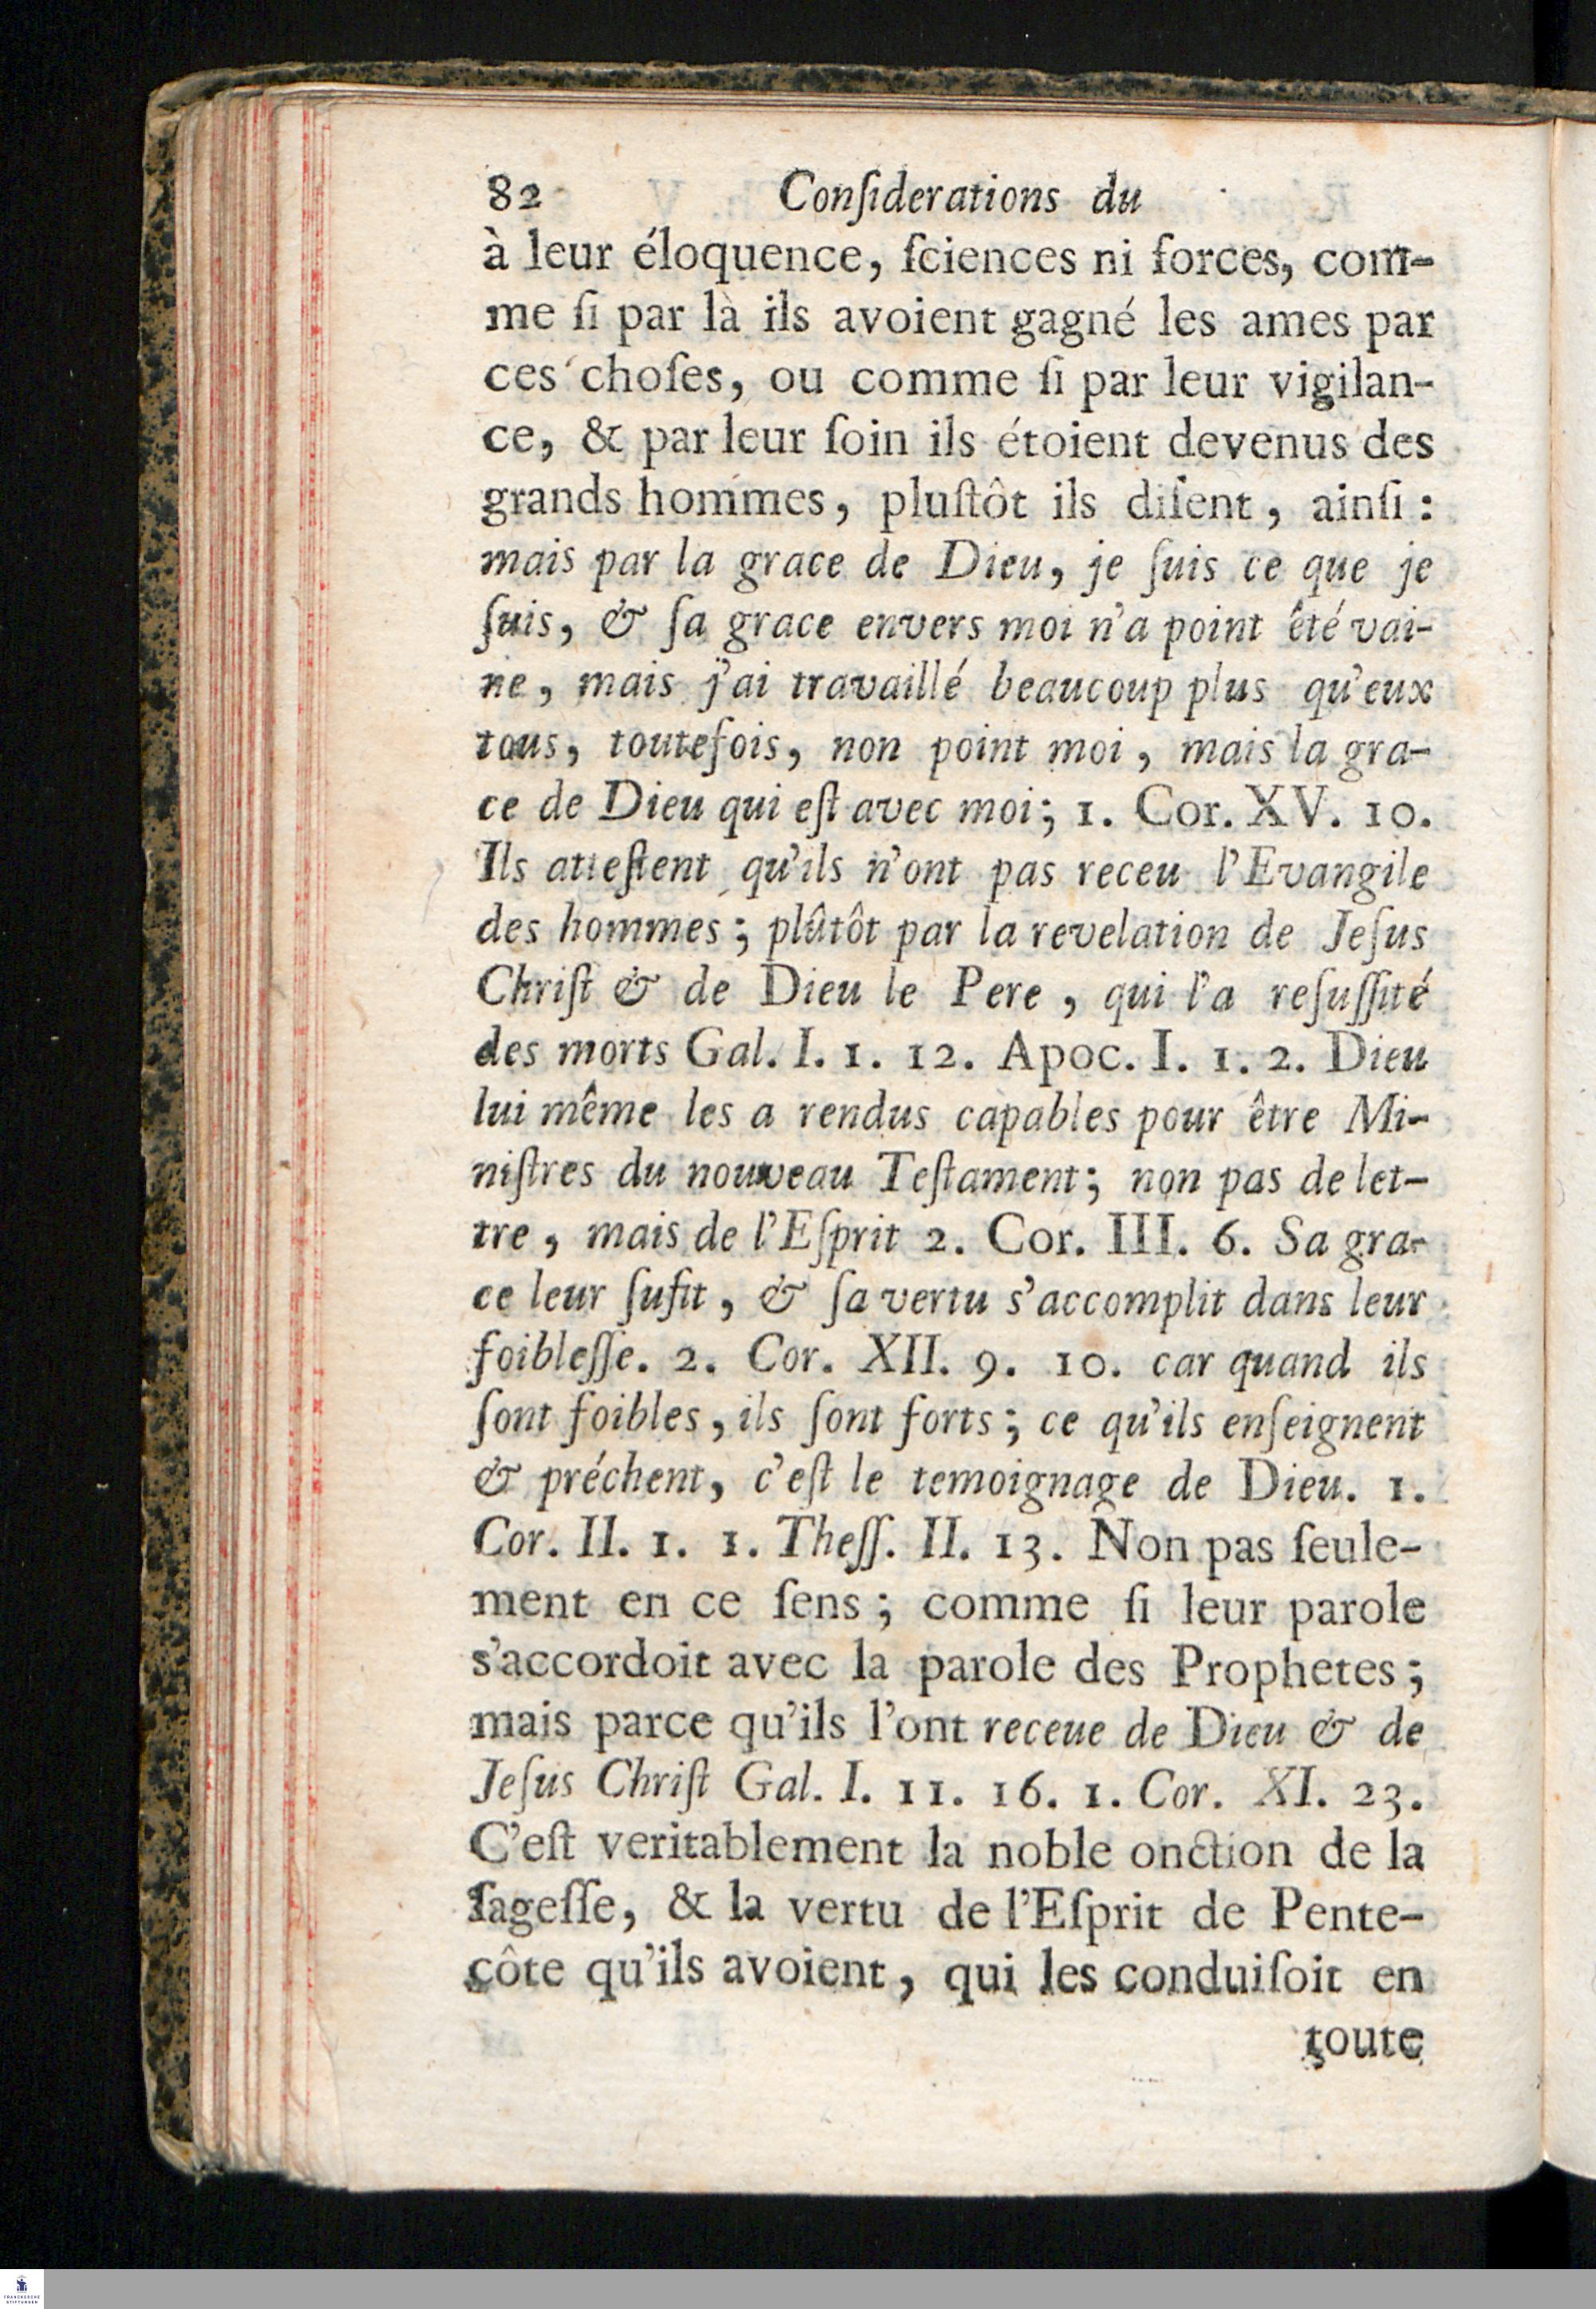 82 Conſiderations du
à leur éloquence, ſciences ni forces, com-
me ſi par là ils avoient gagné les ames par
ces choſes, ou comme ſi par leur vigilan-
ce, & par leur ſoin ils étoient devenus des
grands hommes, pluſtôt ils diſent, ainſi:
mais par la grace de Dieu, je ſuis ce que je
ſuis, & ſa grace envers moi n'a point été vai-
ne, mais j'ai travaillé beaucoup plus qu'eux
tous, toutefois, non point moi, mais la gra-
ce de Dieu qui eſt avec moi; 1. Cor. XV. 10.
Ils atteſtent qu'ils n'ont pas receu l'Evangile
des hommes; plûtôt par la revelation de Jeſus
Chriſt & de Dieu le Pere, qui l'a reſuſſité
des morts Gal. I. 1. 12. Apoc. I. 1. 2. Dieu
lui même les a rendus capables pour être Mi-
niſtres du nouveau Teſtament; non pas de let-
tre, mais de l'Eſprit 2. Cor. III. 6. Sa gra-
ce leur ſufit, & ſa vertu s'accomplit dans leur
foibleſſe. 2. Cor. XII. 9. 10. car quand ils
ſont foibles, ils ſont forts; ce qu'ils enſeignent
& préchent, c'eſt le temoignage de Dieu. 1.
Cor. II. 1. 1. Theſſ. II. 13. Non pas ſeule-
ment en ce ſens; comme ſi leur parole
s'accordoit avec la parole des Prophetes;
mais parce qu'ils l'ont receue de Dieu & de
Jeſus Chriſt Gal. I. 11. 16. 1. Cor. XI. 23.
C'eſt veritablement la noble onction de la
ſageſſe, & la vertu de l'Eſprit de Pente-
côte qu'ils avoient, qui les conduiſoit en
toute
FRANCKESCHE
STIFTUNGEN